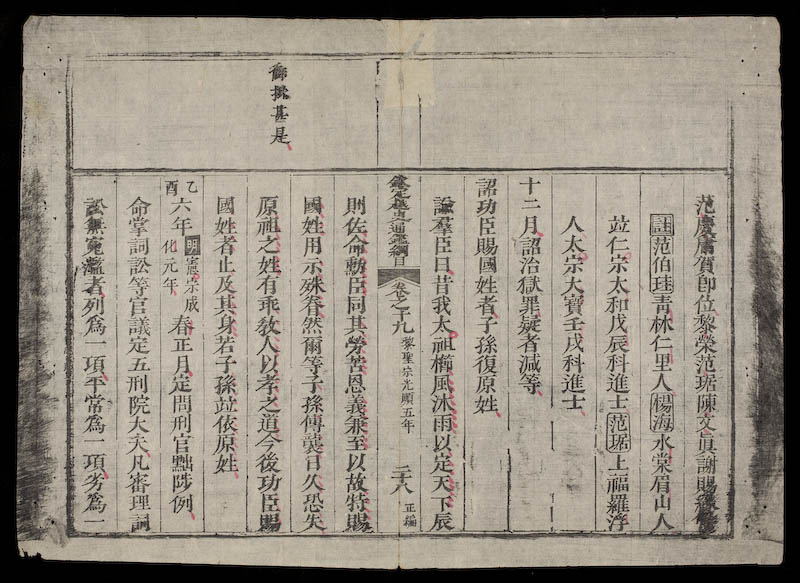 范慶庸賀即位黎榮范琚陳文眞謝賜
註范伯珪青林仁里人楊海水棠眉山人
竝仁宗太和戊辰科進士范琚上福羅浮
人太宗大寶壬戌科進士
十二月詔治獄罪疑者減等
詔功臣賜國姓者子孫復原姓
諭羣臣曰昔我太祖櫛風沐雨以定天下辰
欽定越史通鑑綱目 卷之十九 黎聖宗光順五年 二十八 正編
御批甚是
則佐命勳臣同其勞苦恩義兼至以故特賜
國姓用示殊眷然爾等子孫傳襲日久恐失
原祖之姓有乖教人以孝之道今後功臣賜
國姓者止及其身若子孫竝依原姓
乙酉六年明憲宗成化元年春正月定問刑官黜陟例
命掌詞訟等官議定五刑院大夫凡審理詞
訟無冤濫者列爲一項平常爲一項劣爲一